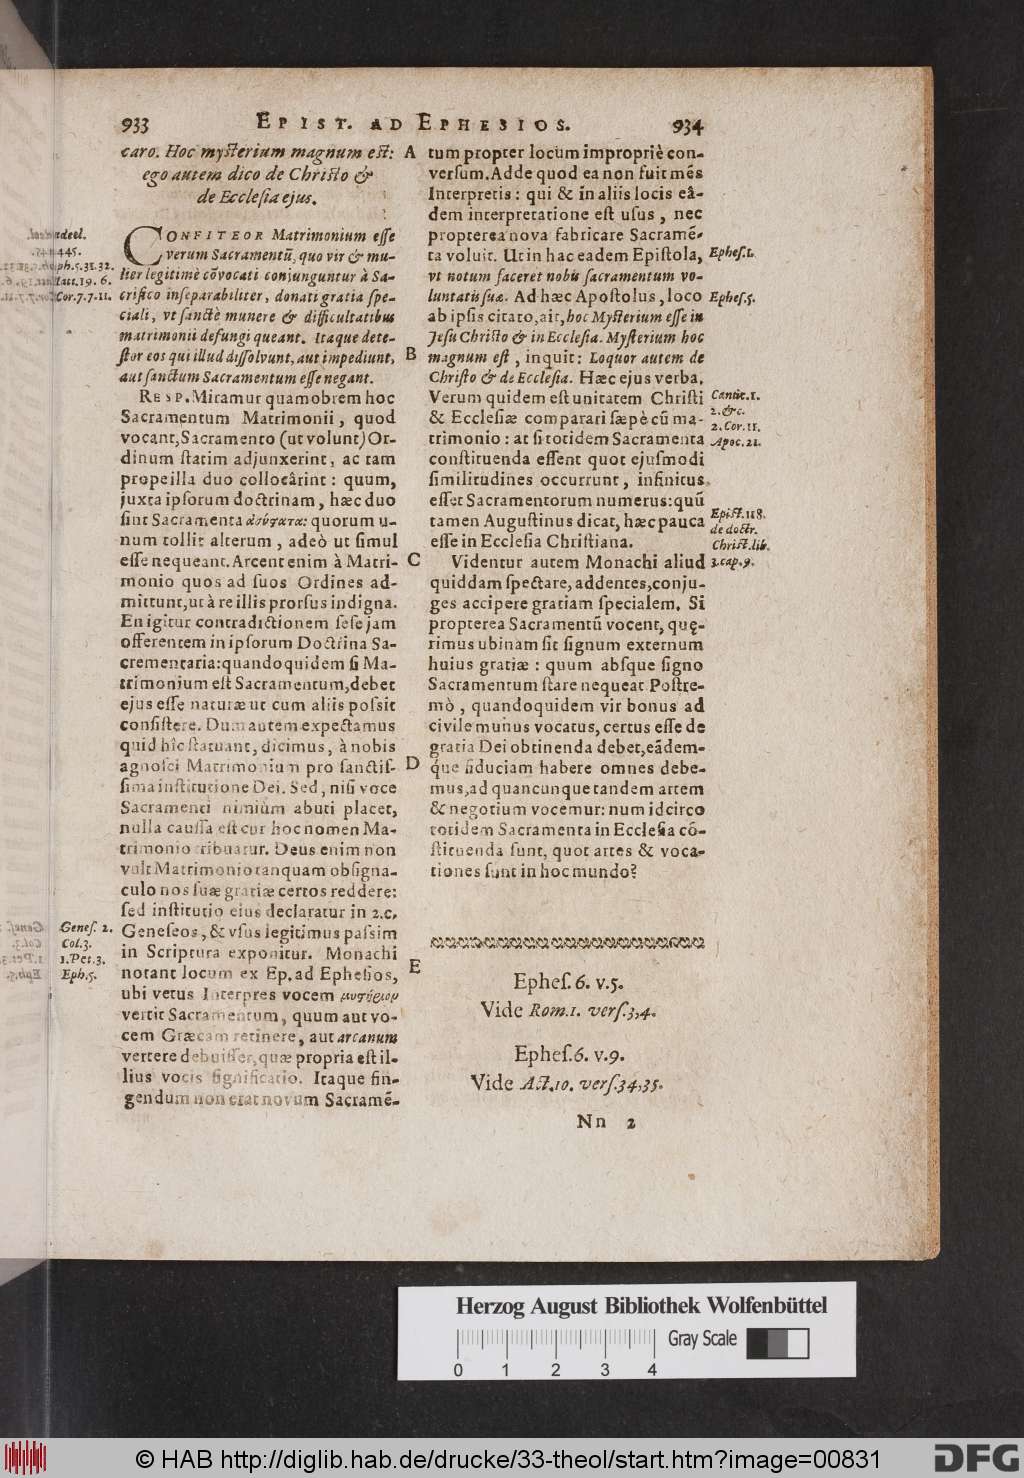 933 EPIST. AD EPHESIOS. 934
caro. Hoc mysterium magnum est:
ego autem dico de Christo &
de Ecclesia ejus.
CONFITEOR Matrimonium esse
verum Sacramentū, quo vir & mu-
lier legitimè cōvocati conjunguntur à Sa-
crifico inseparabiliter, donati gratia spe-
ciali, vt sanctè munere & difficultatibus
matrimonii defungi queant. Itaque dete-
stor eos qui illud dissolvunt, aut impediunt,
aut sanctum Sacramentum esse negant.
RESP. Miramur quamobrem hoc
Sacramentum Matrimonii, quod
vocant, Sacramento (ut volunt) Or-
dinum statim adjunxerint, ac tam
prope illa duo collocârint: quum,
juxta ipsorum doctrinam, hæc duo
sint Sacramenta ἀσύςατα: quorum u-
num tollit alterum, adeò ut simul
esse nequeant. Arcent enim à Matri-
monio quos ad suos Ordines ad-
mittunt, ut à re illis prorsus indigna.
En igitur contradictionem sese jam
offerentem in ipsorum Doctrina Sa-
crementaria: quandoquidem si Ma-
trimonium est Sacramentum, debet
ejus esse naturæ ut cum aliis possit
consistere. Dum autem expectamus
quid hîc statuant, dicimus, à nobis
agnosci Matrimonium pro sanctis-
sima institutione Dei. Sed, nisi voce
Sacramenti nimiùm abuti placet,
nulla caussa est cur hoc nomen Ma-
trimonio tribuatur. Deus enim non
vult Matrimonio tanquam obsigna-
culo nos suæ gratiæ certos reddere:
sed institutio eius declaratur in 2.c.
Geneseos, & vsus legitimus passim
in Scriptura exponitur. Monachi
notant locum ex Ep. ad Ephesios,
ubi vetus Interpres vocem μυςήριον
vertit Sacramentum, quum aut vo-
cem Græcam retinere, aut arcanum
vertere debuisset, quæ propria est il-
lius vocis significatio. Itaque fin-
gendum non erat novum Sacramē-
445.
Eph.5.31.32.
Matt.19.6.
1.Cor.7.7.11.
Genes. 2.
Col.3.
1.Pet.3.
Eph.5.
A
B
C
D
E
tum propter locum impropriè con-
versum. Adde quod ea non fuit mēs
Interpretis: qui & in aliis locis eâ-
dem interpretatione est usus, nec
propterea nova fabricare Sacramē-
ta voluit. Ut in hac eadem Epistola,
vt notum faceret nobis sacramentum vo-
luntatis suæ. Ad hæc Apostolus, loco
ab ipsis citato, ait, hoc Mysterium esse in
Jesu Christo & in Ecclesia. Mysterium hoc
magnum est, inquit: Loquor autem de
Christo & de Ecclesia. Hæc ejus verba.
Verum quidem est unitatem Christi
& Ecclesiæ comparari sæpè cū ma-
trimonio: at si totidem Sacramenta
constituenda essent quot ejusmodi
similitudines occurrunt, infinitus
esset Sacramentorum numerus: quū
tamen Augustinus dicat, hæc pauca
esse in Ecclesia Christiana.
Videntur autem Monachi aliud
quiddam spectare, addentes, conju-
ges accipere gratiam specialem. Si
propterea Sacramentū vocent, quę-
rimus ubinam sit signum externum
huius gratiæ: quum absque signo
Sacramentum stare nequeat. Postre-
mò, quandoquidem vir bonus ad
civile munus vocatus, certus esse de
gratia Dei obtinenda debet, eādem-
q́ue fiduciam habere omnes debe-
mus, ad quancunque tandem artem
& negotium vocemur: num idcirco
totidem Sacramenta in Ecclesia cō-
stituenda sunt, quot artes & voca-
tiones sunt in hoc mundo?
Ephes.1.
Ephes.5.
Cantic.1.
2.&c.
2.Cor.11.
Apoc.21.
Epist.118.
de doctr.
Christ.lib.
3.cap.9.
Ephes. 6. v.5.
Vide Rom.1. vers.3,4.
Ephes.6. v.9.
Vide Act.10. vers.34,35.
Nn 2
Herzog August Bibliothek Wolfenbüttel
Gray Scale
0 1 2 3 4
© HAB http://diglib.hab.de/drucke/33-theol/start.htm?image=00831
DFG